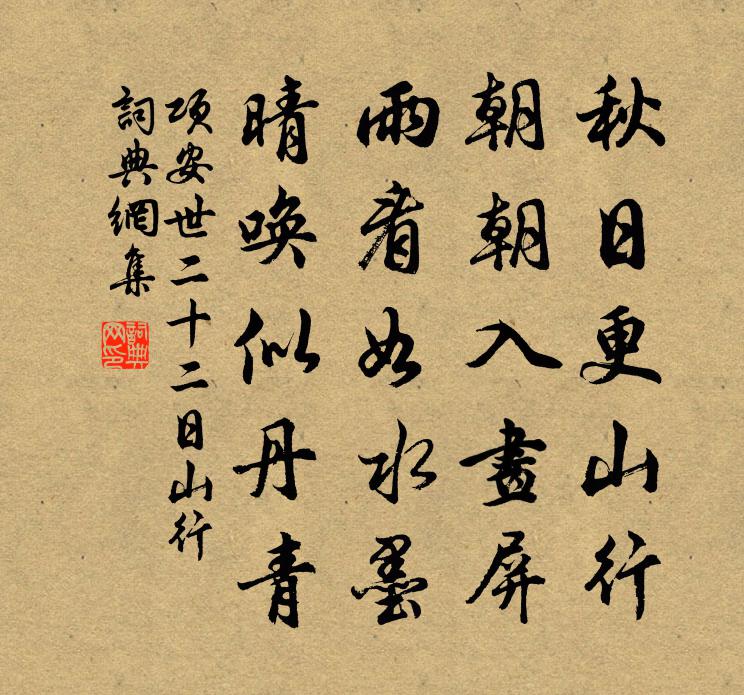 秋日更山行
朝朝入畫屏
雨看如水墨
晴喚似丹青
項安世二十二日山行
詞典網集
詞典网印